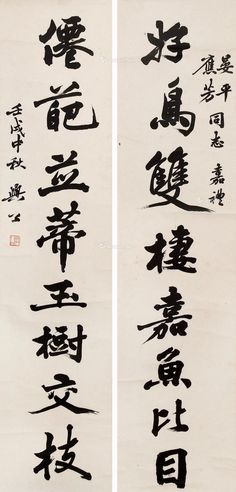 晏平
應芳同志嘉禮
好鳥雙棲嘉魚比目
僊葩並蒂玉樹交枝
壬戌中秋興公